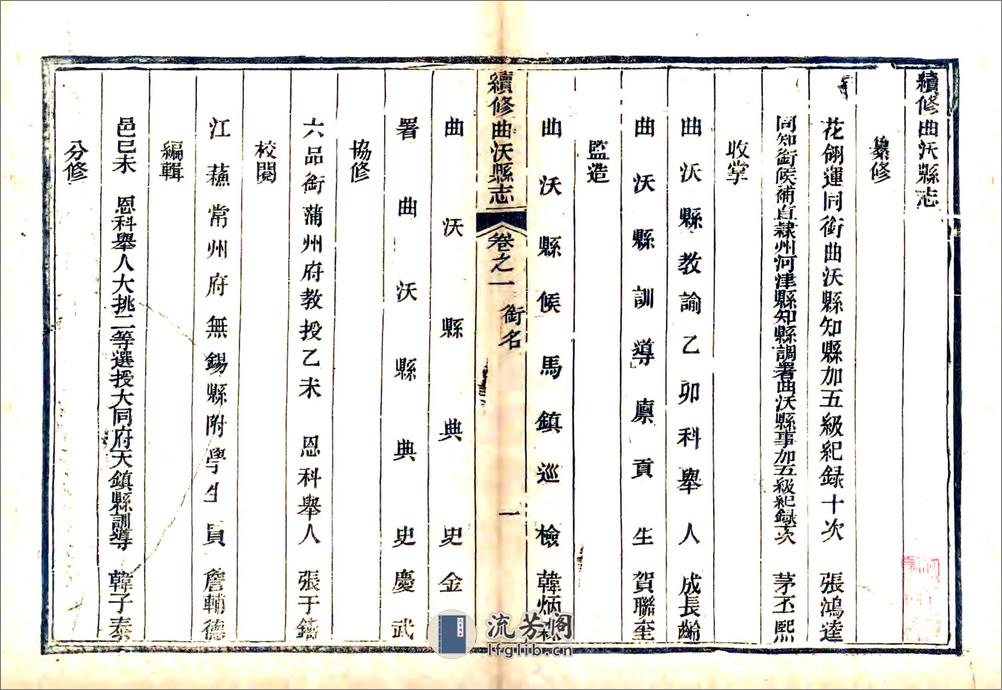 續修曲沃縣志
纂修
花翎運同銜曲沃縣知縣加五級紀録十次 張鴻逵
同知銜候補直隸州河津縣知縣調署曲沃縣事加五級紀録 次 茅丕熙
收掌
曲沃縣教諭乙卯科舉人 成長齡
曲沃縣訓導廪貢生 賀聯奎
監造
曲沃縣候馬鎮巡檢 韓炳
續修曲沃縣志 卷之一 銜名 一
曲沃縣典史金
署曲沃縣典史慶武
協修
六品銜蒲州府教授乙未 恩科舉人 張于鑄
校閱
江蘇常州府無錫縣附學生員 詹輔德
編輯
邑己未 恩科舉人大挑二等選授大同府天鎮縣訓導 韓子泰
分修
流芳阁
lfglib.cn